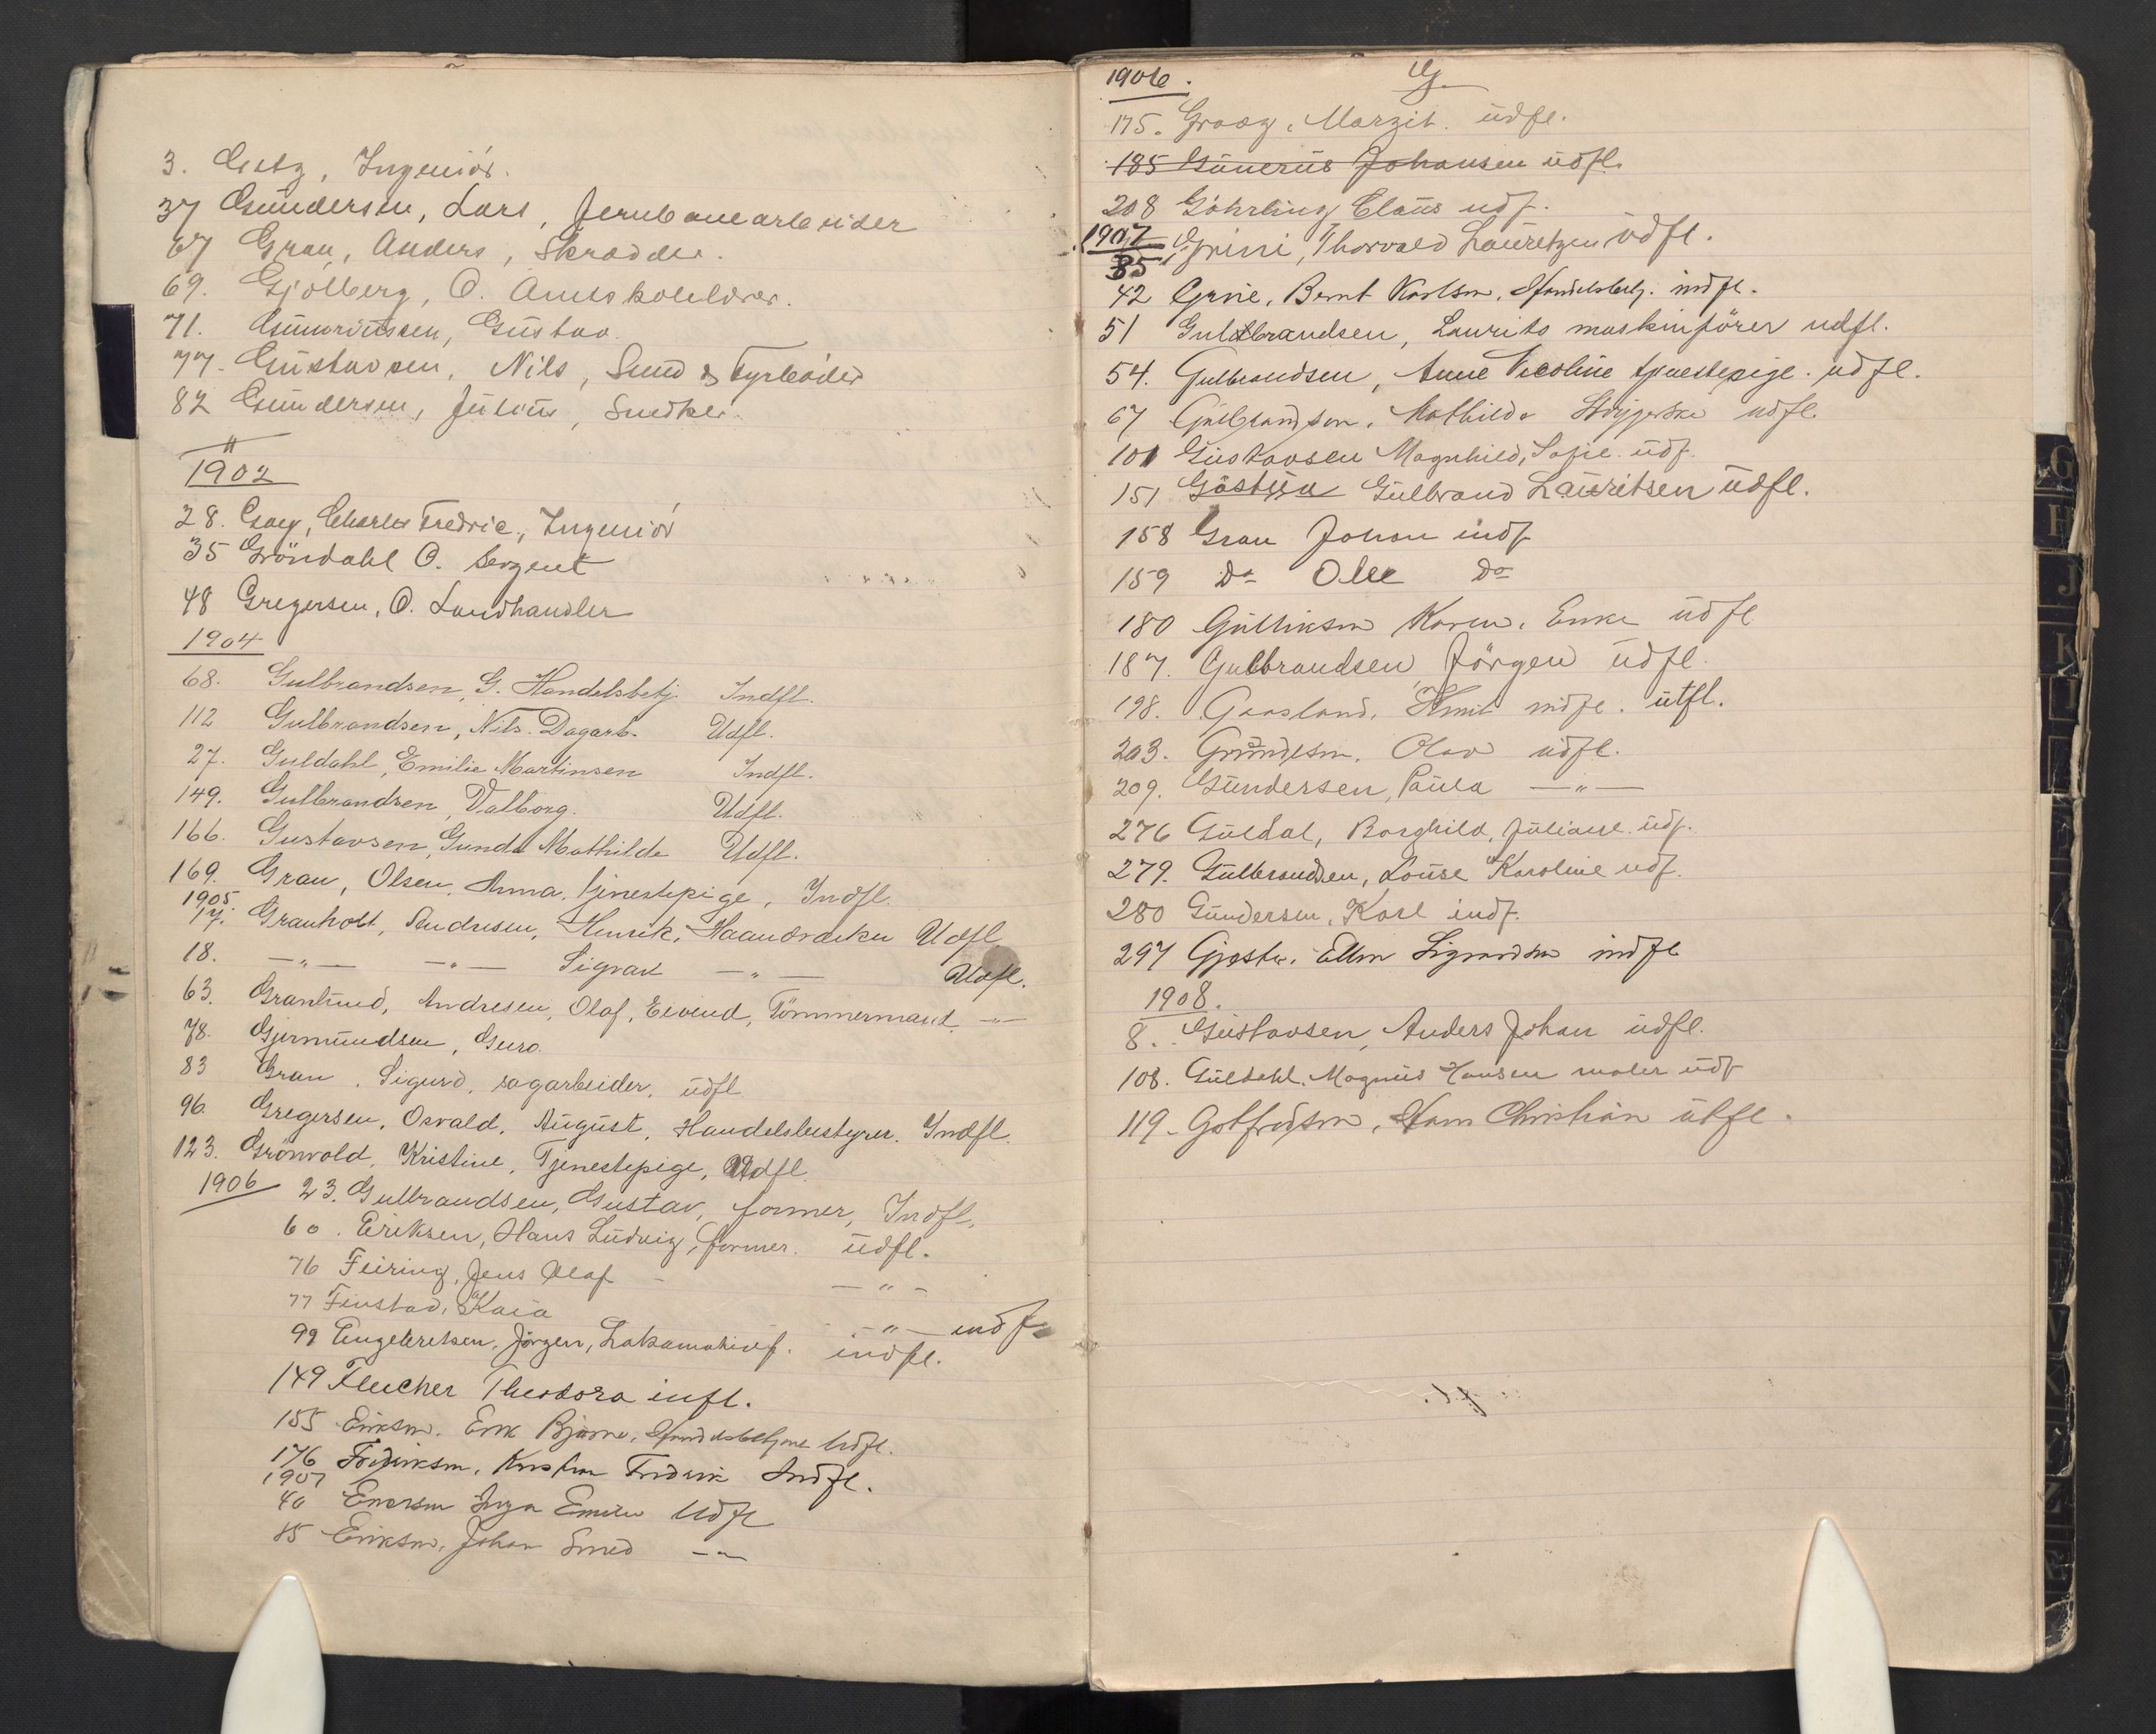 3. Gietz, Ingeniör.
37 Gundersen, Lars, Jernbanearbeider
67 Gran, Anders, Skrædder.
69. Gjölberg, O. Amtskolelærer.
71. Guneriussen, Gustav.
77. Gustavsen, Nils, Smed & Fyrböder
82 Gundersen, Julius, Snedker.
1902
28. Gaey, Charles Fredric, Ingeniör
35 Gröndahl O. Sergent
48 Gregersen, O. Landhandler
1904
68. Gulbrandsen, G. Handelsbetj. Indfl.
112 Gulbrandsen, Nils. Dagarb. Udfl.
27. Guldahl, Emilie Martinsen Indfl.
149. Gulbrandsen, Valborg. Udfl.
166. Gustavsen, Gunda Mathilde Udfl.
169. Gran, Olsen, Anna, tjenestepige, Indfl.
1905
17. Granholt, Andresen, Henrik, Haandværker Udfl.
18. —"— —"— Sigvart —"— Udfl.
63. Granlund, Andresen, Olaf, Eivend, Tömmermand, —"—
78. Gjermundsen, Guro.
83 Gran, Sigurd, sagarbeider, udfl.
96. Gregersen, Osvald, August, Handelsbestyrer. Indfl.
123. Grönvold, Kristine, Tjenestepige, Udfl.
1906 23. Gulbrandsen, Gustav, former, Indfl.
60. Eriksen, Hans Ludvig, former. udfl.
76 Feiring, Jens Olaf - —"—
77 Finstad, Kaia —"— indf
99 Engebretsen, Jörgen, Lokomotivf. indfl.
149 Flucher Theodora infl.
155 Eriksen, Erik Bjarne, Handelsbetjent Udfl.
176 Fredriksen, Kristian Fredrik Indfl.
1907
40 Enersen Inga Emilie Udfl
85 Eriksen, Johan Smed —"—
1906. G.
175. Graag, Margit. udfl.
185 Gunerius Johansen udfl.
208 Göhrling Claus udf.
1907
35 Grini, Thorvald Lauretzen udfl.
42 Grue, Bernt Karlsen, Handelsbetj. indfl.
51 Guldbrandsen, Laurits maskinförer udfl.
54. Gulbrandsen, Anne Nicoline tjenestepige. udfl.
67 Gulbrandsen, Mathilde Strygerske udfl.
101 Gustavsen Magnhild, Sofie udf.
151 Göstua Gulbrand Lauritsen udfl.
158 Gran Johan indf
159 Do Ole Do
180 Gulliksen Karen, Enke udfl
187. Gulbrandsen, Jörgen udfl.
198. Gaasland, Knut indfl. utfl.
203. Gundersen, Olav udfl.
209. Gundersen, Paula —"—
276 Guldal, Borghild, Juliane udf.
279. Gulbrandsen, Louise Karoline udf.
280 Gundersen, Karl indf.
297 Gjestv. Ellen Sigvardsen indfl
1908.
8. Gustavsen, Anders Johan udfl.
108. Guldahl, Magnus Hansen maler udf
119. Gotfredsen, Hans Christian utfl.